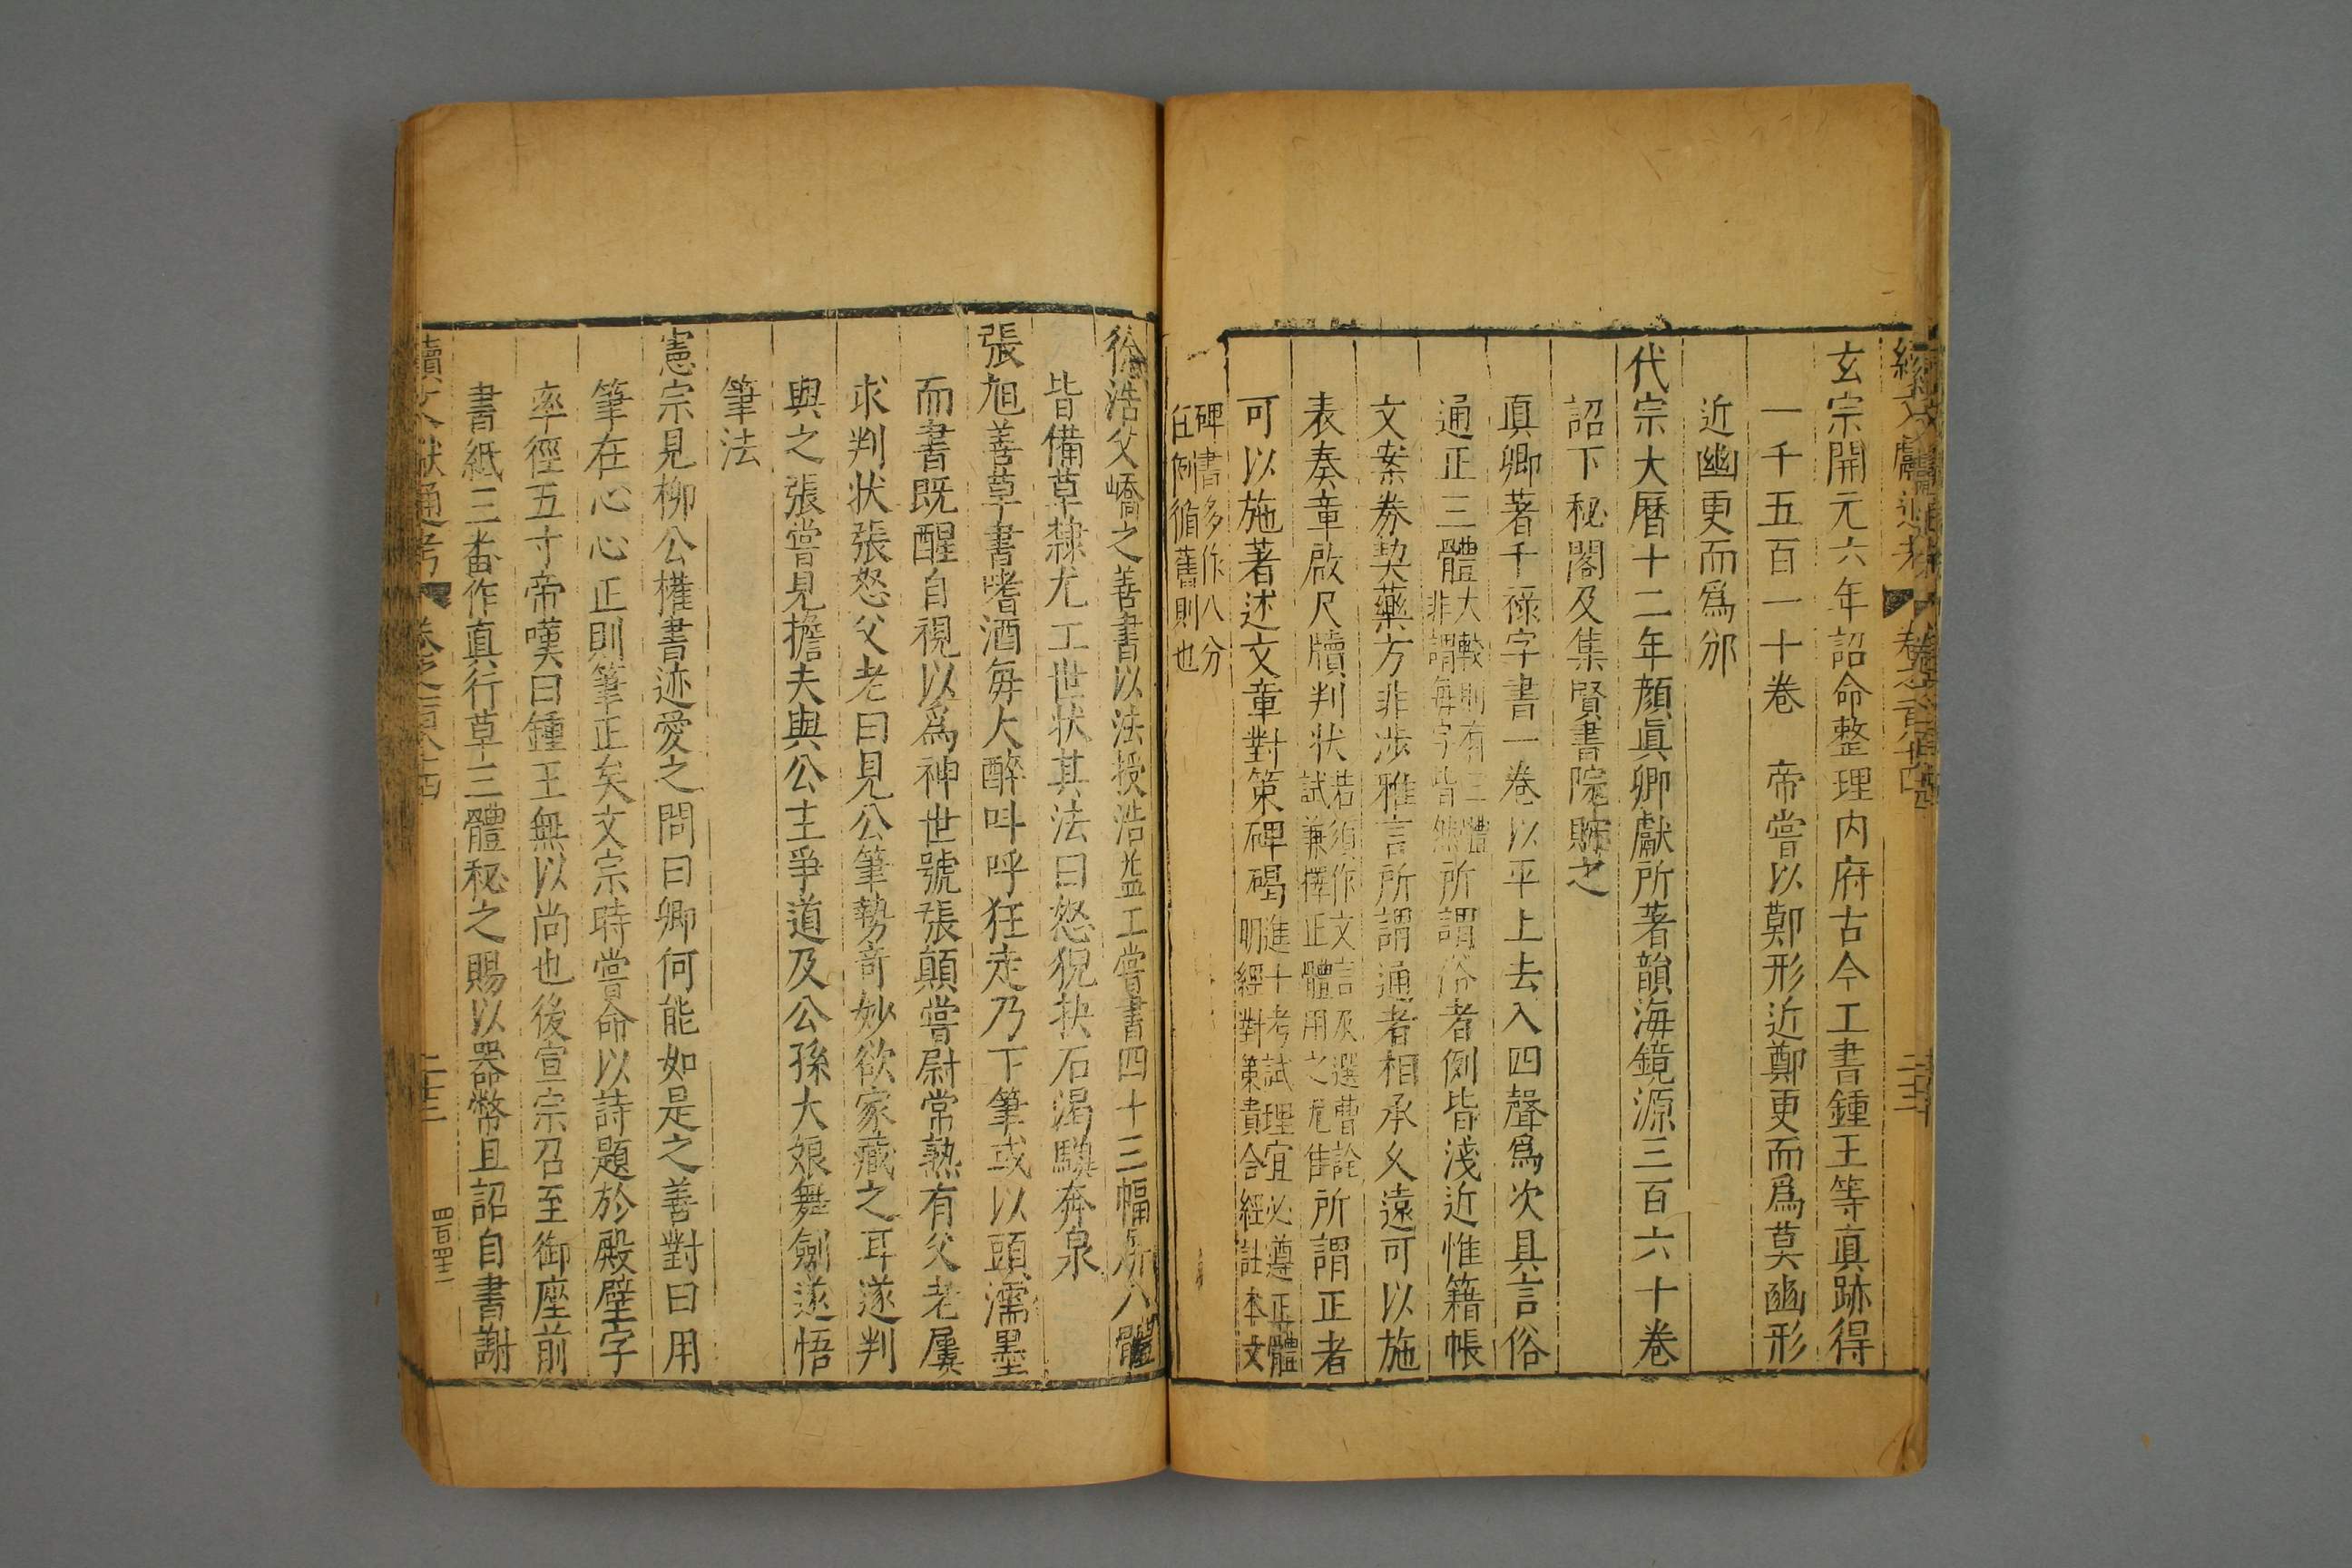 玄宗開元六年詔命整理内府古今工書鍾王等眞跡得
一千五百一十卷　帝嘗以鄚形近鄭更而爲莫豳形
近幽更而爲邠
代宗大曆十二年顏眞卿獻所著韻海鏡源三百六十卷
詔下秘閣及集賢書院貯之
眞卿著千禄字書一卷以平上去入四聲爲次具言俗
通正三體大較則有三體非謂每字皆然所謂俗者例皆淺近惟籍帳
文案券契藥方非涉雅言所謂通者相承久遠可以施
表奏章啟尺牘判状若須作文言及選曹詮試兼擇正體用之尤佳所謂正者
可以施著述文章對策碑碣進士考試理宜必遵正體明經對策貴合經註本文
碑書多作八分任例循舊則也
徐浩父嶠之善書以法授浩益工嘗書四十三幅屏八體
皆備草隸尤工世状其法曰怒猊抉石渴驥奔泉
張旭善草書嗜酒每大醉呌呼狂走乃下筆或以頭濡墨
而書既醒自視以爲神世號張顛嘗尉常熟有父老屢
求判状張怒父老曰見公筆勢奇妙欲家藏之耳遂判
與之張嘗見擔夫與公主爭道及公孫大娘舞劍遂悟
筆法
憲宗見柳公權書迹愛之問曰卿何能如是之善對曰用
筆在心心正則筆正矣文宗時嘗命以詩題於殿壁字
率徑五寸帝嘆曰鍾王無以尚也後宣宗召至御座前
書紙三畨作眞行草三體秘之賜以器幣且詔自書謝
續文獻通考